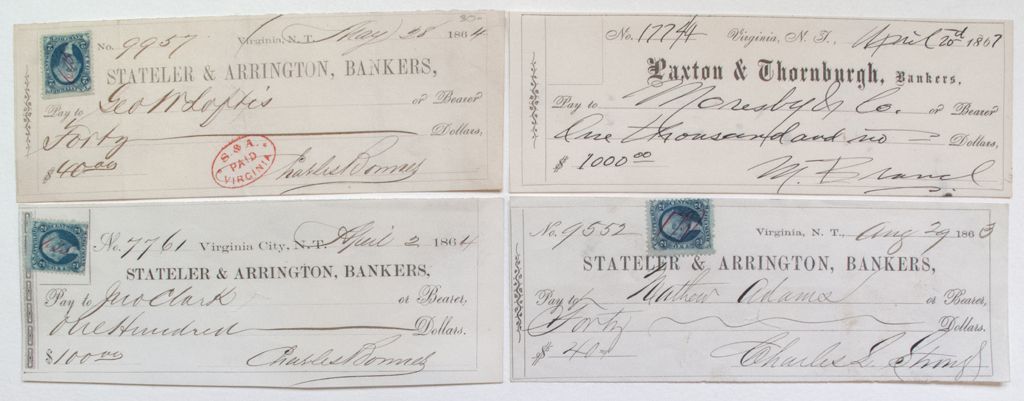 No. 9957 Virginia, N. T. May 28 1864
STATELER & ARRINGTON, BANKERS,
Pay to Geo W Loftis or Bearer
Forty Dollars,
$40.00 Charles Bonner
S. & A.
PAID
VIRGINIA
No. 17744 Virginia, N. T., April 20d 1867
Paxton & Thornburgh, Bankers,
Pay to Moresby & Co. or Bearer
One thousand and no Dollars,
$ 1000.00
No. 7761 Virginia City, N.T. April 2 1864
STATELER & ARRINGTON, BANKERS,
Pay to Jno Clark or Bearer,
One Hundred Dollars.
$100.00 Charles Bonner
No. 9552 Virginia, N. T., Aug 29 1863
STATELER & ARRINGTON, BANKERS,
Pay to Mathew Adams or Bearer,
Forty Dollars.
$ 40 Charles L. Strong